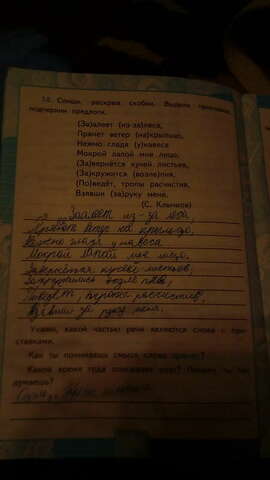 16. Спиши, раскрыв скобки. Выдели приставки,
подчеркни предлоги.
(За)алеет (из-за)леса,
Прянет ветер (на)крыльцо,
Нежно гладя (у)навеса
Мокрой лапой мне лицо.
(За)вернётся кучей листьев,
(За)кружится (возле)пня,
(По)ведёт, тропы расчистив,
Взявши (за)руку меня.
(С. Клычков)
Заалеет из-за леса,
Прянет ветер на крыльцо,
Нежно гладя у навеса
Мокрой лапой мне лицо.
Завернётся кучей листьев,
Закружится возле пня,
Поведёт, тропы расчистив,
Взявши за руку меня.
Укажи, какой частью речи являются слова с при-
ставками.
Как ты понимаешь смысл слова прянет?
Какое время года описывает поэт? Почему ты так
думаешь?